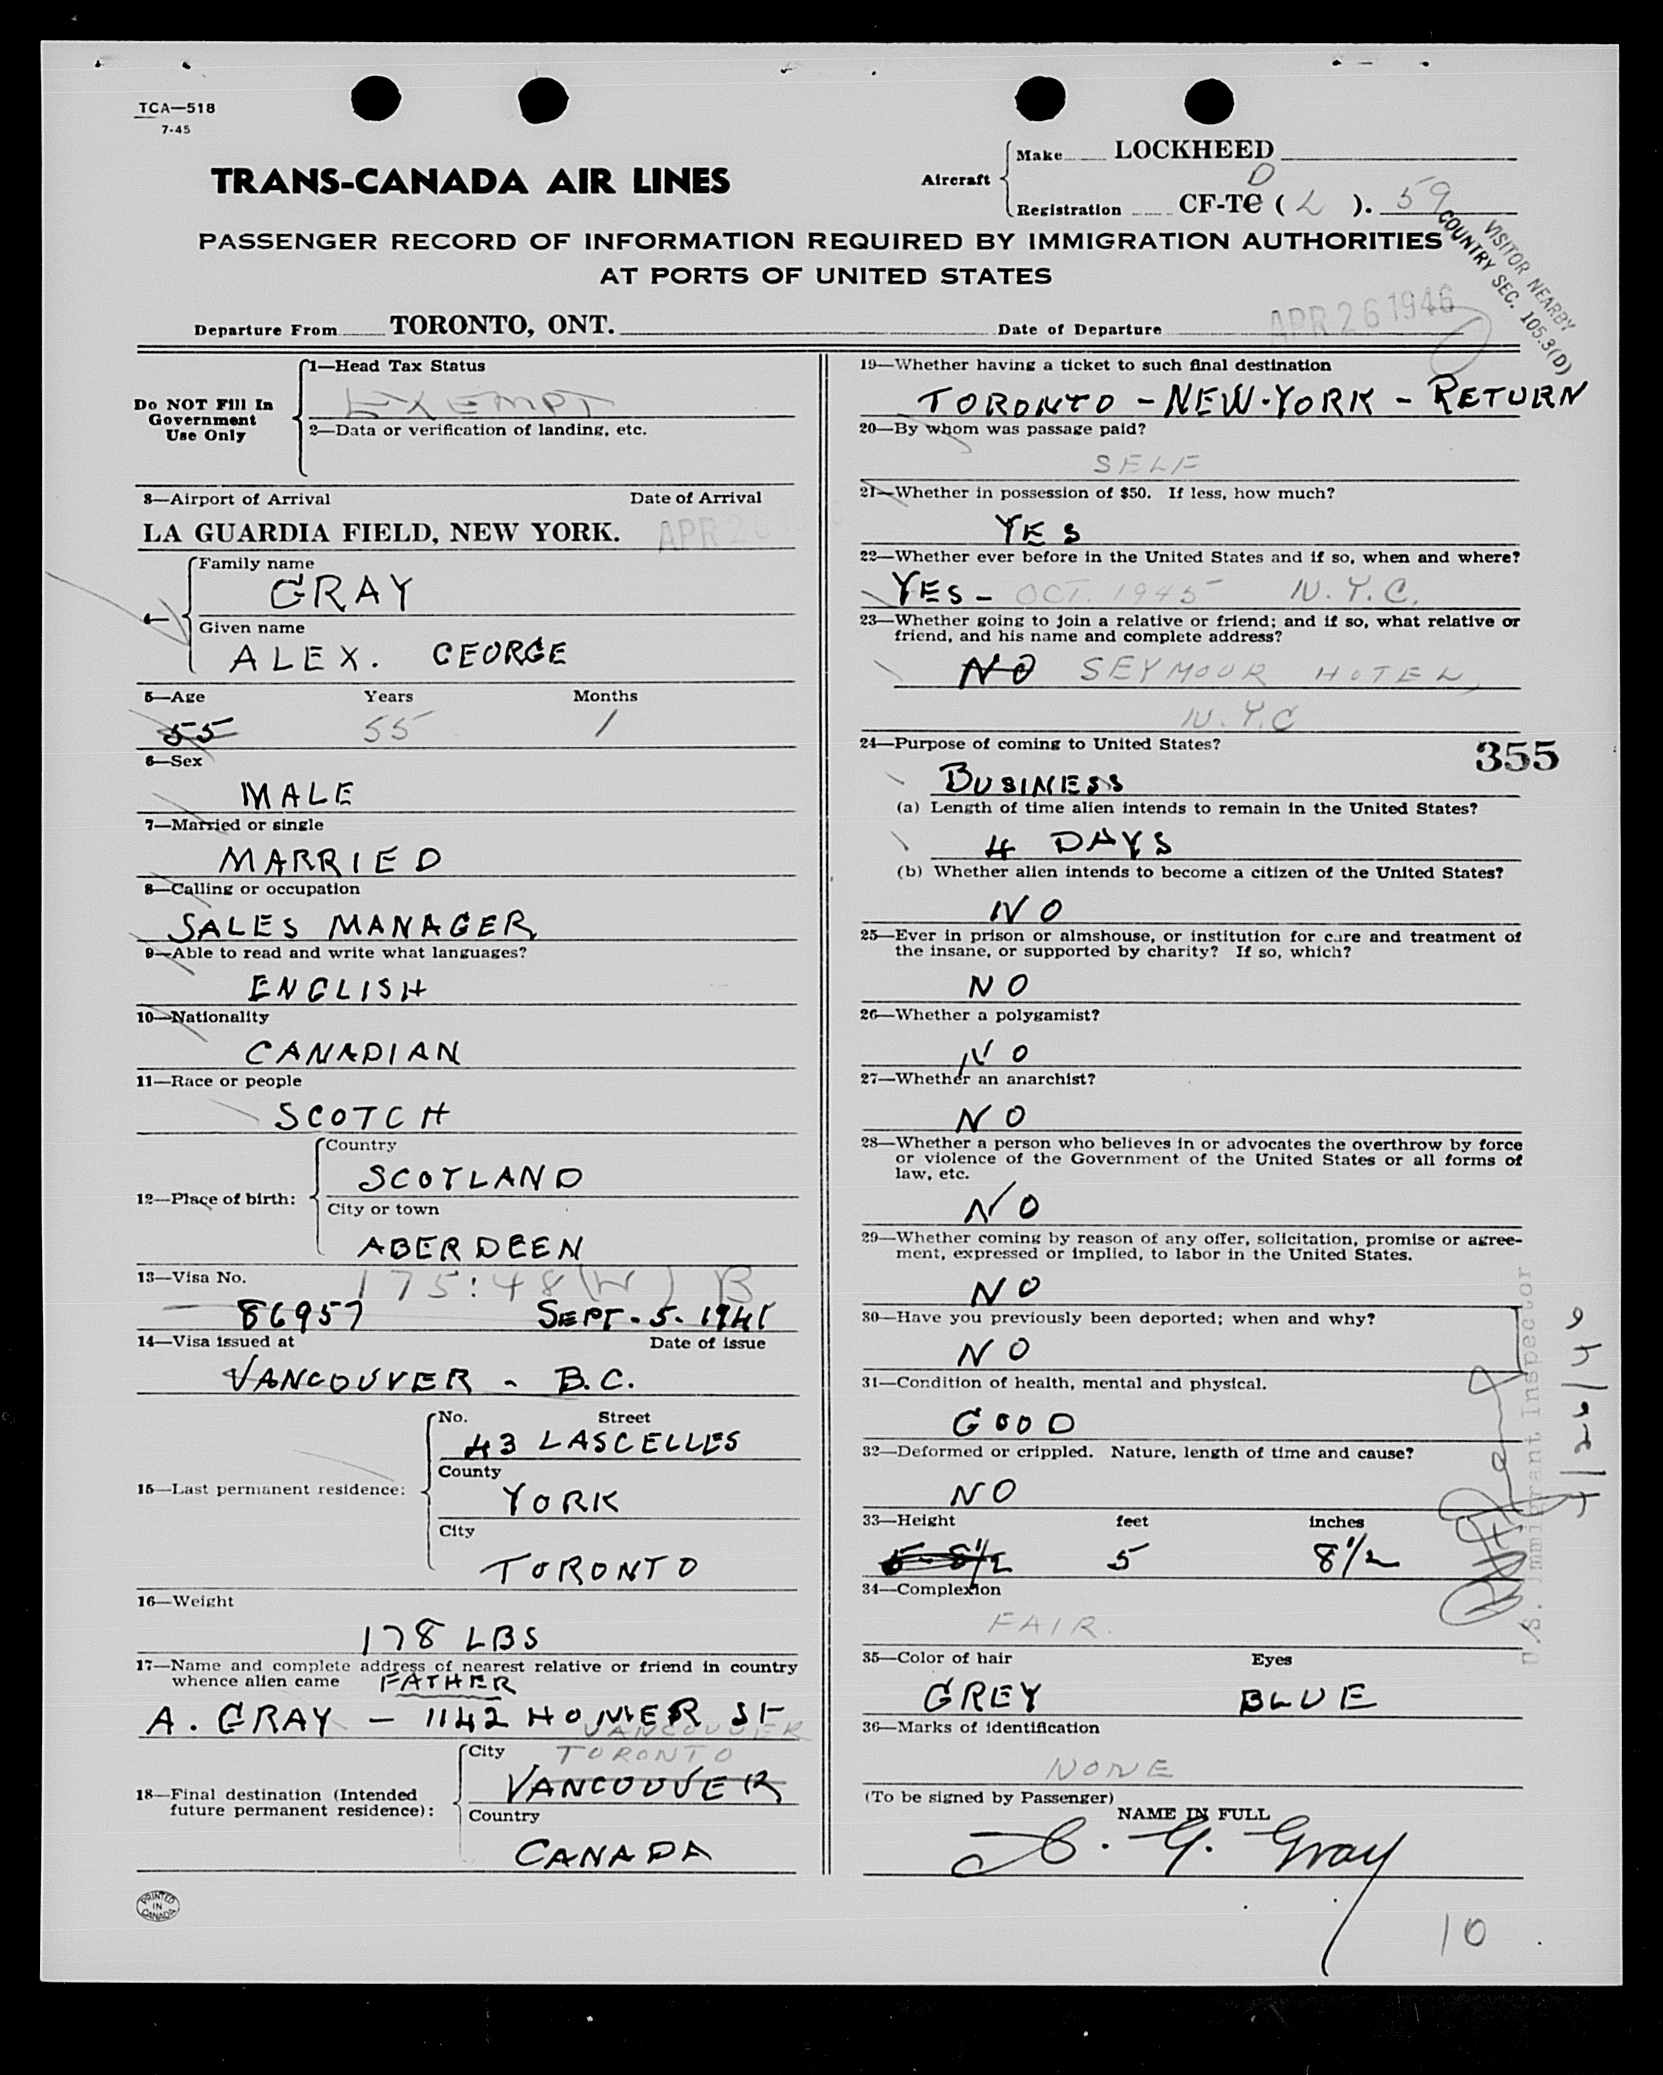 TCA—518
7-45
TRANS-CANADA AIR LINES
Aircraft
Make LOCKHEED
D
Registration CF-TC ( L ). 59
VISITOR NEARBY
COUNTRY SEC. 105.3(D)
PASSENGER RECORD OF INFORMATION REQUIRED BY IMMIGRATION AUTHORITIES
AT PORTS OF UNITED STATES
Departure From TORONTO, ONT.
Date of Departure APR 26 1946
Do NOT Fill In
Government
Use Only
1—Head Tax Status
EXEMPT
2—Data or verification of landing, etc.
3—Airport of Arrival Date of Arrival
LA GUARDIA FIELD, NEW YORK. APR 26
4—
Family name
GRAY
Given name
ALEX. GEORGE
5—Age Years Months
55 55 1
6—Sex
MALE
7—Married or single
MARRIED
8—Calling or occupation
SALES MANAGER
9—Able to read and write what languages?
ENGLISH
10—Nationality
CANADIAN
11—Race or people
SCOTCH
12—Place of birth:
Country
SCOTLAND
City or town
ABERDEEN
13—Visa No. 175:48(W) B
86957 SEPT. 5. 1941
14—Visa issued at Date of issue
VANCOUVER - B.C.
15—Last permanent residence:
No. Street
43 LASCELLES
County
YORK
City
TORONTO
16—Weight
178 LBS
17—Name and complete address of nearest relative or friend in country
whence alien came FATHER
A. GRAY — 1142 HOMER ST
VANCOUVER
18—Final destination (Intended
future permanent residence):
City TORONTO
VANCOUVER
Country
CANADA
PRINTED
IN
CANADA
19—Whether having a ticket to such final destination
TORONTO - NEW-YORK - RETURN
20—By whom was passage paid?
SELF
21—Whether in possession of $50. If less, how much?
YES
22—Whether ever before in the United States and if so, when and where?
YES - OCT. 1945 N.Y.C.
23—Whether going to join a relative or friend; and if so, what relative or
friend, and his name and complete address?
NO SEYMOUR HOTEL,
N.Y.C
24—Purpose of coming to United States?
355
BUSINESS
(a) Length of time alien intends to remain in the United States?
4 DAYS
(b) Whether alien intends to become a citizen of the United States?
NO
25—Ever in prison or almshouse, or institution for care and treatment of
the insane, or supported by charity? If so, which?
NO
26—Whether a polygamist?
NO
27—Whether an anarchist?
NO
28—Whether a person who believes in or advocates the overthrow by force
or violence of the Government of the United States or all forms of
law, etc.
NO
29—Whether coming by reason of any offer, solicitation, promise or agree-
ment, expressed or implied, to labor in the United States.
NO
30—Have you previously been deported; when and why?
NO
31—Condition of health, mental and physical.
GOOD
32—Deformed or crippled. Nature, length of time and cause?
NO
33—Height feet inches
5-8½ 5 8½
34—Complexion
FAIR.
35—Color of hair Eyes
GREY BLUE
36—Marks of identification
NONE
(To be signed by Passenger)
NAME IN FULL
A. G. Gray
U.S. Immigrant Inspector
4/26/46
10